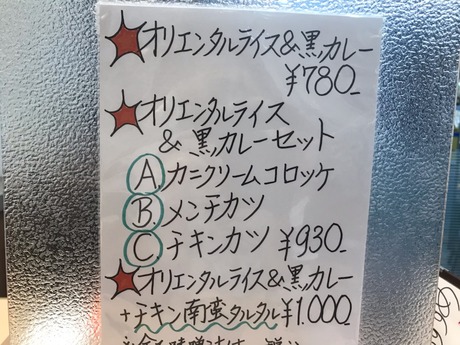 オリエンタルライス&黒カレー
¥780-
オリエンタルライス
&黒カレーセット
A.カニクリームコロッケ
B.メンチカツ
C.チキンカツ ¥930-
オリエンタルライス&黒カレー
+チキン南蛮タルタル¥1.000